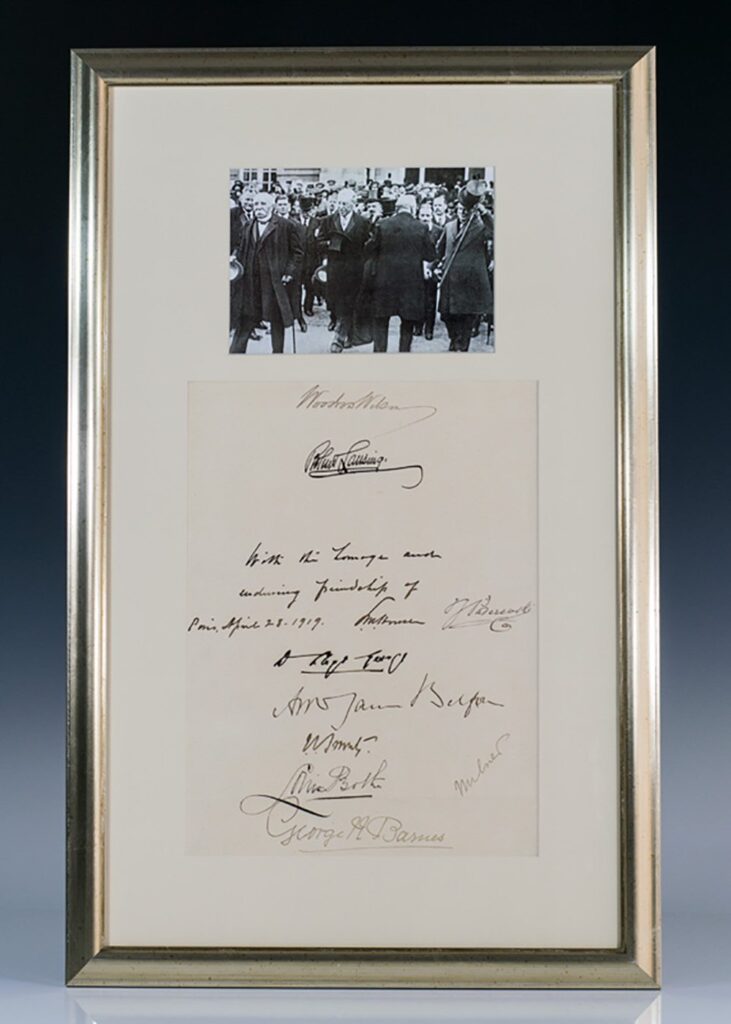 Woodrow Wilson
Robert Lansing.
With the homage and
enduring friendship of
Paris, April 28. 1919.
D Lloyd George
Arthur James Balfour
Louis Botha
Milner
George N Barnes